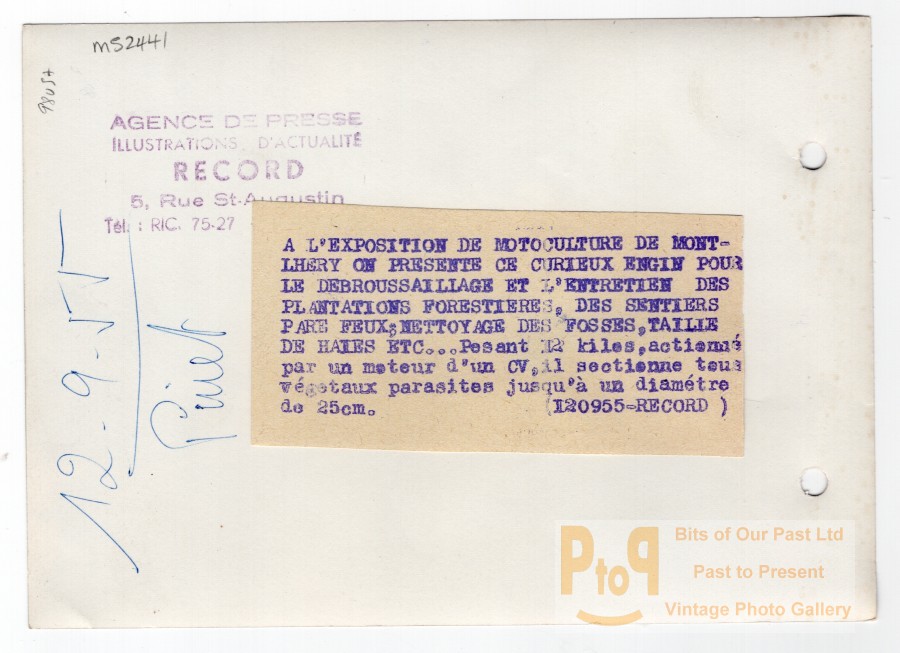 MS2441
AGENCE DE PRESSE
ILLUSTRATIONS D'ACTUALITÉ
RECORD
5, Rue St-Augustin
Tél. : RIC. 75-27
A L'EXPOSITION DE MOTOCULTURE DE MONT-
LHERY ON PRESENTE CE CURIEUX ENGIN POUR
LE DEBROUSSAILLAGE ET L'ENTRETIEN DES
PLANTATIONS FORESTIERES, DES SENTIERS
PARE FEUX;NETTOYAGE DES FOSSES,TAILLE
DE HAIES ETC...Pesant 12 kilos,actionné
par un moteur d'un CV,il sectionne tous
végetaux parasites jusqu'à un diamétre
de 25cm. (120955-RECORD )
12-9-55
Bits of Our Past Ltd
PtoP
Past to Present
Vintage Photo Gallery